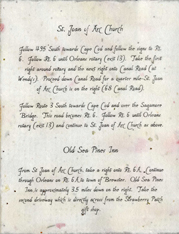 St. Joan of Arc Church
Follow 495 South towards Cape Cod and follow the signs to Rt.
6. Follow Rt. 6 until Orleans rotary (exit 13). Take the first
right around rotary and the next right onto Canal Road (at
Wendy's). Proceed down Canal Road for a quarter mile-St. Joan
of Arc Church is on the right (61 Canal Road).
Follow Route 3 South towards Cape Cod and over the Sagamore
Bridge. This road becomes Rt. 6. Follow Rt. 6 until Orleans
rotary (exit 13) and continue to St. Joan of Arc Church as above
Old Sea Pines Inn
From St. Joan of Arc Church, take a right onto Rt. 6A. Continue
through Orleans on Rt. 6A to town of Brewster. Old Sea Pines
Inn is approximately 3.5 miles down on the right. Take the
second driveway which is directly across from the Strawberry Patch
gift shop.